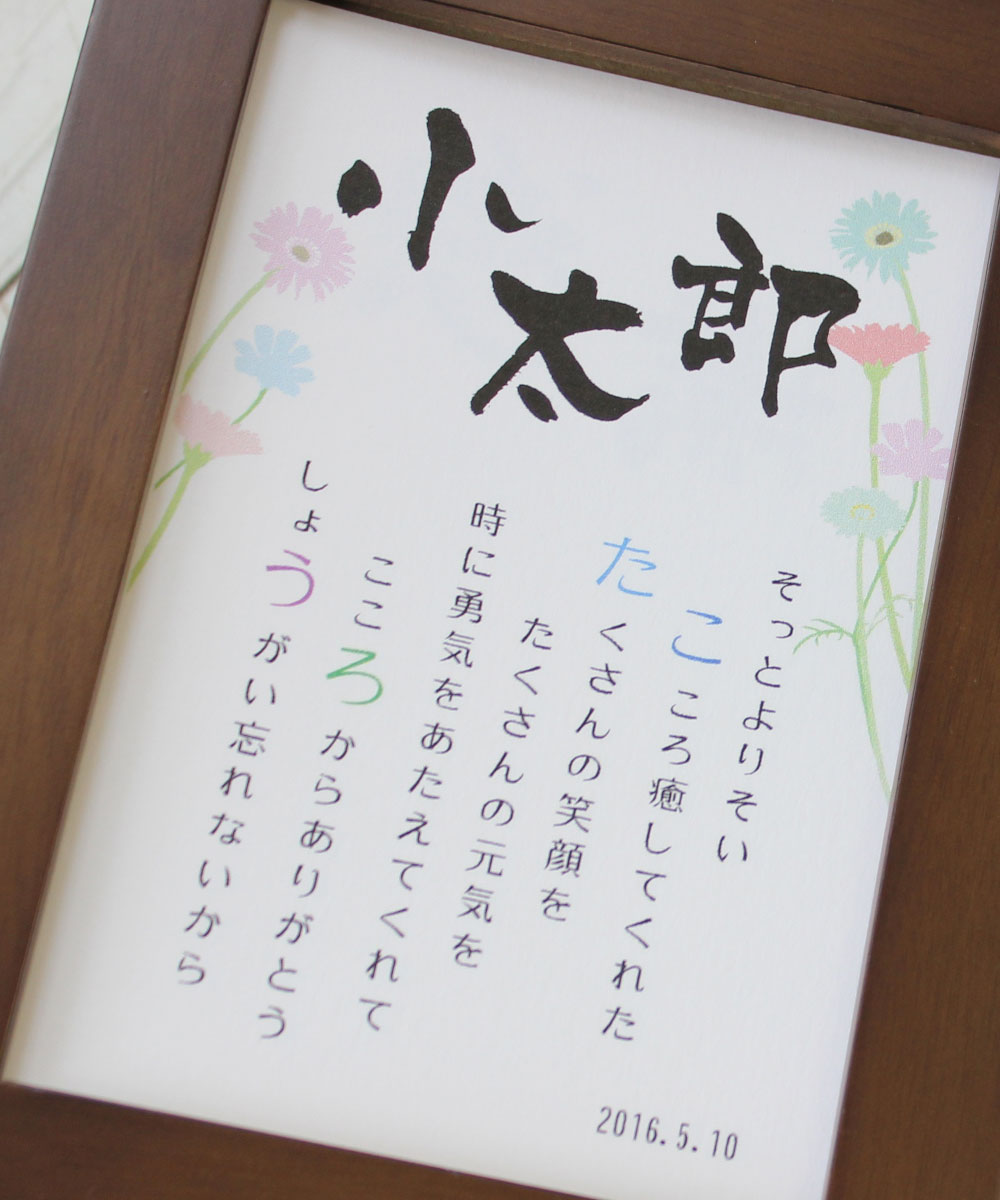 小太郎
そっとよりそい
こころ癒してくれた
たくさんの笑顔を
たくさんの元気を
時に勇気をあたえてくれて
こころからありがとう
しょうがい忘れないから
2016.5.10